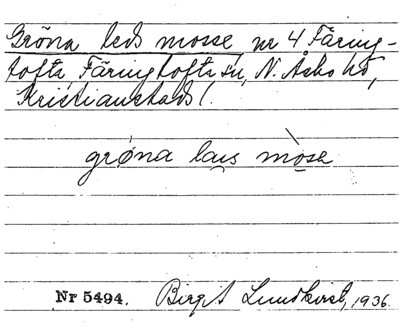 Gröna leds mosse, nr 4 Färing-
tofta Färingtofta sn, N. Åsbo hd,
Kristianstads l.
grǿna lais mòse
Nr 5494. Birgit Lundkvist, 1936.